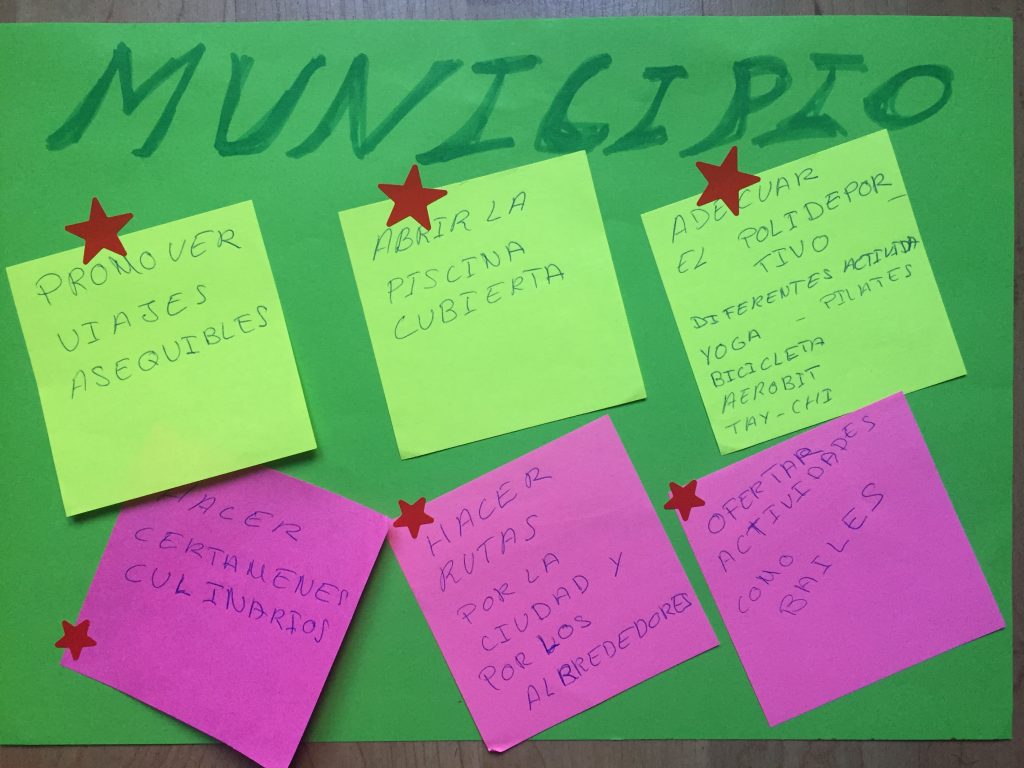 MUNICIPIO
PROMOVER
VIAJES
ASEQUIBLES
ABRIR LA
PISCINA
CUBIERTA
ADECUAR
EL POLIDEPOR_
TIVO
DIFERENTES ACTIVIDA
YOGA - PILATES
BICICLETA
AEROBIT
TAY-CHI
HACER
CERTAMENES
CULINARIOS
HACER
RUTAS
POR LA
CIUDAD Y
POR LOS
ALBREDEDORES
OFERTAR
ACTIVIDADES
COMO
BAILES